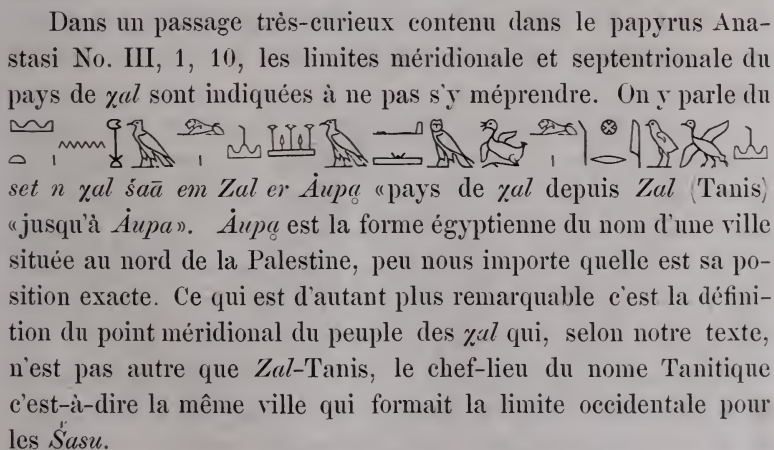 Dans un passage très-curieux contenu dans le papyrus Ana-
stasi No. III, 1, 10, les limites méridionale et septentrionale du
pays de χal sont indiquées à ne pas s'y méprendre. On y parle du
set n χal śaā em Zal er Ȧupa̤ «pays de χal depuis Zal (Tanis)
«jusqu'à Ȧupa». Ȧupa̤ est la forme égyptienne du nom d'une ville
située au nord de la Palestine, peu nous importe quelle est sa po-
sition exacte. Ce qui est d'autant plus remarquable c'est la défini-
tion du point méridional du peuple des χal qui, selon notre texte,
n'est pas autre que Zal-Tanis, le chef-lieu du nome Tanitique
c'est-à-dire la même ville qui formait la limite occidentale pour
les Śasu.